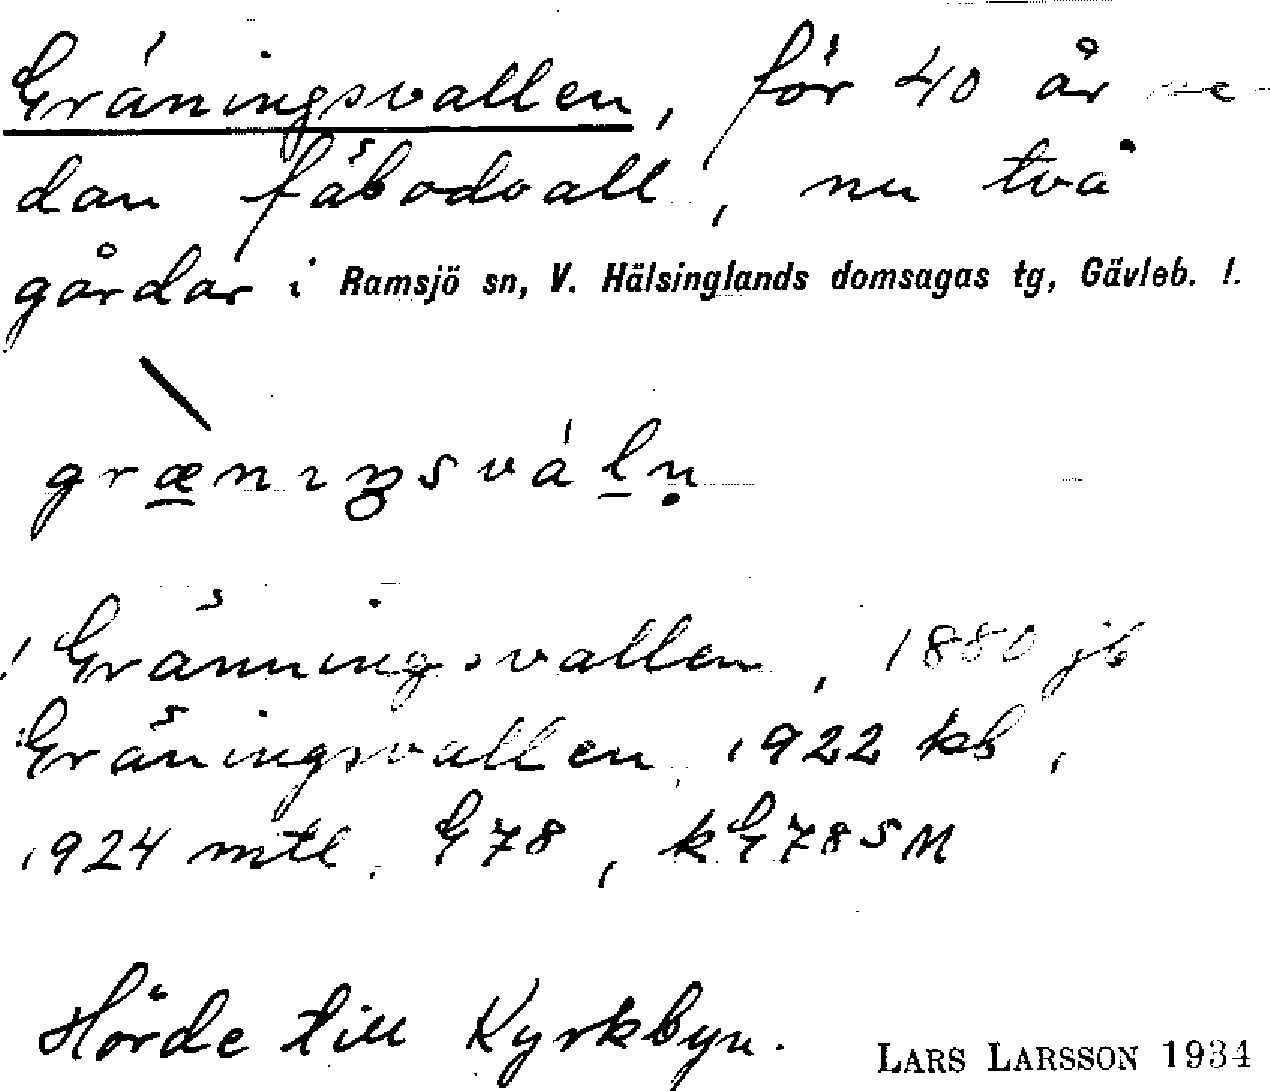 Gräningsvallen, för 40 år se-
dan fäbodvall, nu två
gårdar i Ramsjö sn, V. Hälsinglands domsagas tg, Gävleb. l.
grænıŋsvál̲ṇ
! Gränningsvallen, 1880 jb
Gräningsvallen, 1922 kb,
1924 mtl, G78, kG78SM
Hörde till Kyrkbyn.
LARS LARSSON 1934